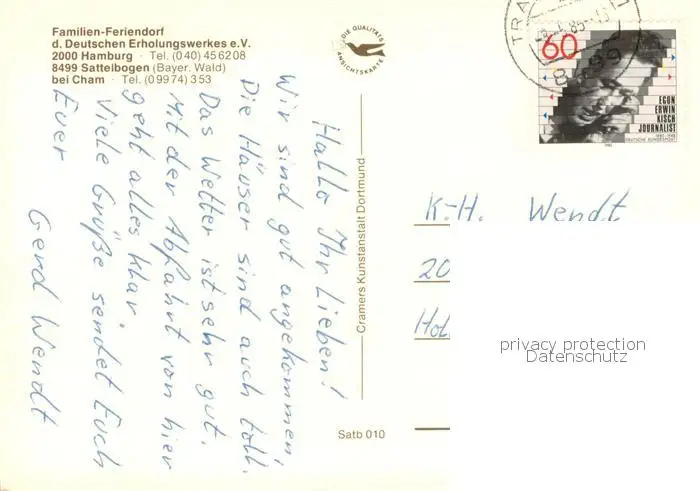 Familien-Feriendorf
d. Deutschen Erholungswerkes e.V.
2000 Hamburg · Tel. (040) 45 62 08
8499 Sattelbogen (Bayer. Wald)
bei Cham · Tel. (0 99 74) 3 53
DIE QUALITÄTS
ANSICHTSKARTE
60
EGON
ERWIN
KISCH
JOURNALIST
1885-1948
DEUTSCHE BUNDESPOST
1985
Hallo Ihr Lieben!
Wir sind gut angekommen,
Die Häuser sind auch toll.
Das Wetter ist sehr gut.
Mit der Abfahrt von hier
geht alles klar.
Viele Grüße sendet Euch
Euer
Gerd Wendt
Cramers Kunstanstalt Dortmund
Satb 010
K.-H. Wendt
20
privacy protection
Datenschutz